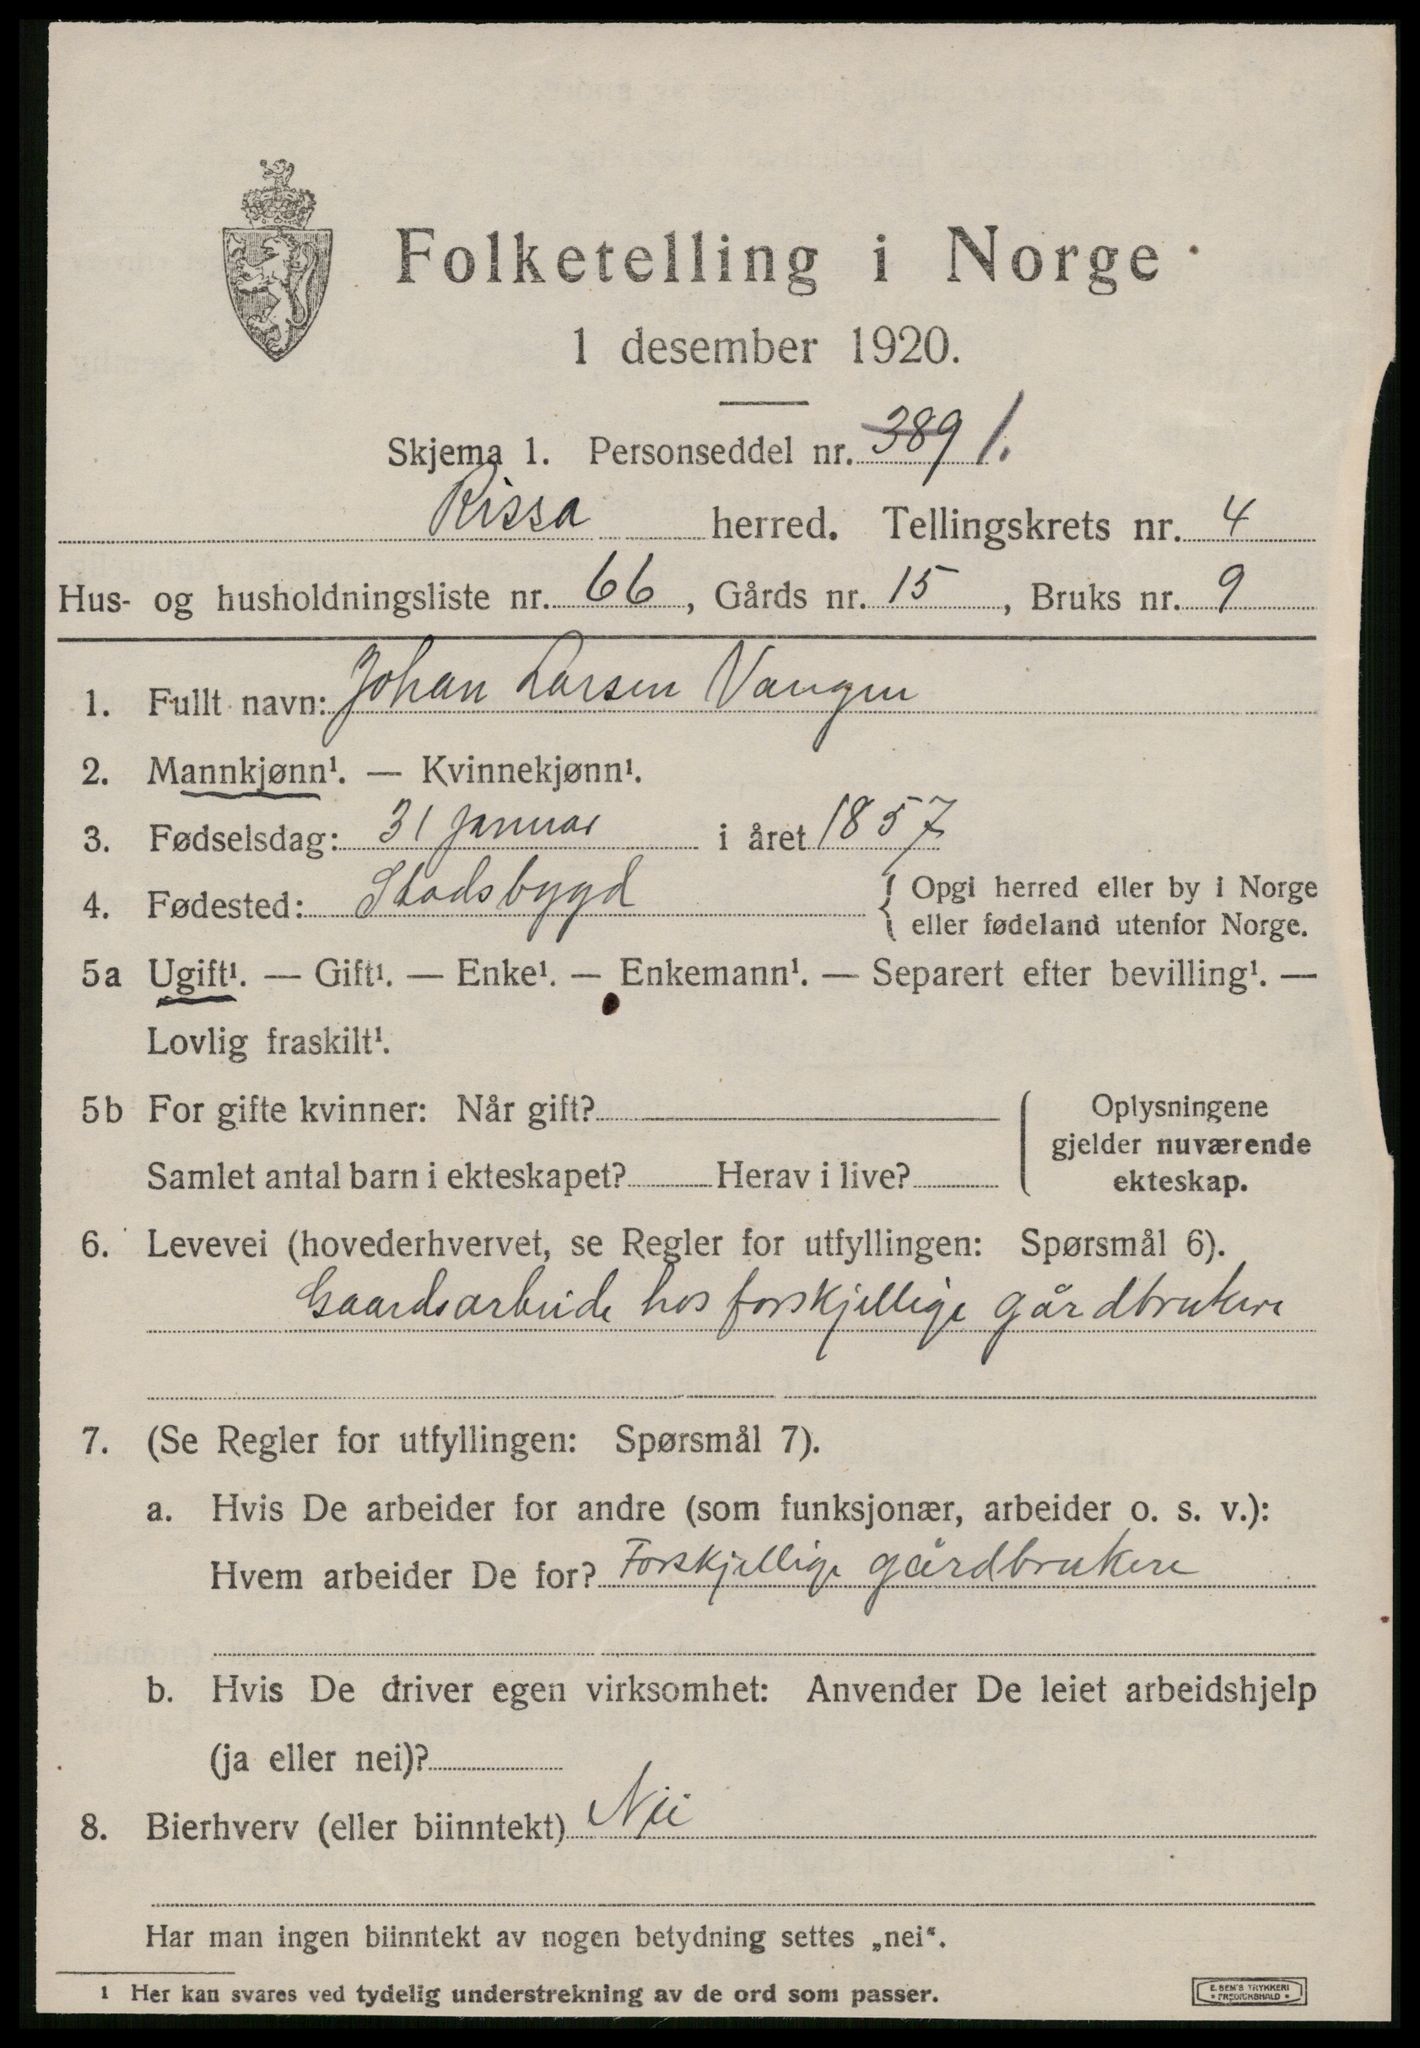 Folketelling i Norge
1 desember 1920.
Skjema 1. Personseddel nr. 389 1.
Rissa herred. Tellingskrets nr. 4
Hus- og husholdningsliste nr. 66, Gårds nr. 15, Bruks nr. 9
1. Fullt navn: Johan Larsen Vangen
2. Mannkjønn¹. — Kvinnekjønn¹.
3. Fødselsdag: 31 januar i året 1857
4. Fødested: Stadsbygd { Opgi herred eller by i Norge
eller fødeland utenfor Norge.
5a Ugift¹. — Gift¹. — Enke¹. — Enkemann¹. — Separert efter bevilling¹. —
Lovlig fraskilt¹.
5b For gifte kvinner: Når gift?
Samlet antal barn i ekteskapet? Herav i live?
Oplysningene
gjelder nuværende
ekteskap.
6. Levevei (hovederhvervet, se Regler for utfyllingen: Spørsmål 6).
Gaardsarbeide hos forskjellige gårdbrukere
7. (Se Regler for utfyllingen: Spørsmål 7).
a. Hvis De arbeider for andre (som funksjonær, arbeider o. s. v.):
Hvem arbeider De for? Forskjellige gårdbrukere
b. Hvis De driver egen virksomhet: Anvender De leiet arbeidshjelp
(ja eller nei)?
8. Bierhverv (eller biinntekt) Nei
Har man ingen biinntekt av nogen betydning settes „nei“.
1 Her kan svares ved tydelig understrekning av de ord som passer.
E. SEM'S TRYKKERI
* FREDRIKSHALD *